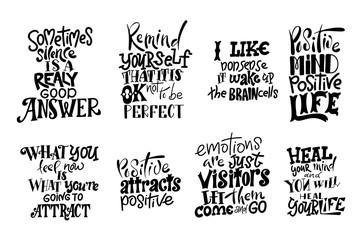 Sometimes
silence
IS A
REALY
GOOD
ANSWER
Remind
YOURSELF
THAT IT IS
OK not to be
PERFECT
I LIKE
nonsense
it wake up
the BRAINcells
Positive
MIND
POSITIVE
LIFE
WHAT YOU
feel now
IS
WHAT YOU'RE
GOING TO
ATTRACT
Positive
attracts
positive
emotions
are just
VISITORS
LET them
COME and GO
HEAL
your mind
and
YOU WILL
HEAL
YOUR LIFE